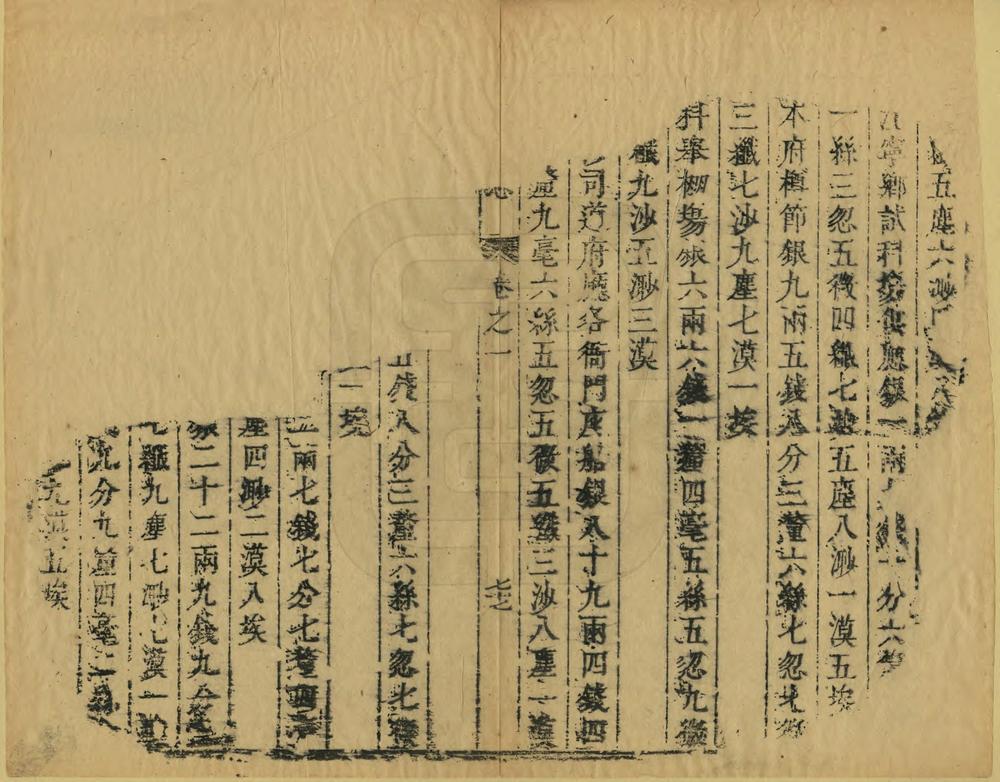 五塵六渺
寧鄉試科舉供應銀一兩 分六
一絲三忽五微四纖七沙五塵八渺一漠五埃
本府樽節銀九兩五錢八分三釐六絲七忽七微
三纖七沙九塵七漠一埃
科舉棚塲銀六兩六錢一釐四毫五絲五忽九微
纖九沙五渺三漠
司道府廳各衙門座船銀八十九兩四錢四
釐九毫六絲五忽五微五纖三沙八塵一漠
卷之一 七十七
五錢八分三釐六絲七忽七微
一埃
兩七錢七分七釐四毫
塵四渺二漠八埃
銀二十二兩九錢九分
纖九塵七渺七漠一
九分九釐四毫二絲
九漠五埃